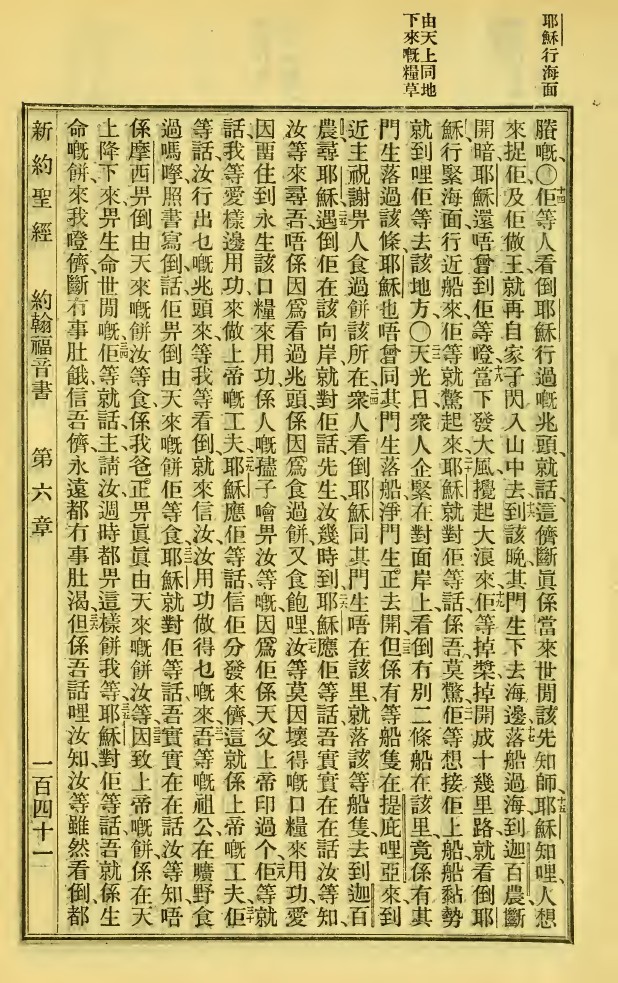 耶穌行海面
由天上同地
下來嘅糧草
賸嘅、〇十四佢等人看倒耶穌行過嘅兆頭、就話、這儕斷眞係當來世間該先知師、十五耶穌知哩、人想
來捉佢及佢做王、就再自家孑閃入山中去、十六到該晚、其門生下去海邊、十七落船過海到迦百農、斷
開暗、耶穌還唔曾到佢等噔、十八當下發大風攪起大浪來、十九佢等掉槳掉開成十幾里路、就看倒耶
穌行緊海面行近船來、佢等就驚起來、二十耶穌就對佢等話、係吾、莫驚、二一佢等想接佢上船、船黏勢
就到哩佢等去該地方、〇二二天光日、衆人企緊在對面岸上、看倒冇別二條船在該里、竟係有其
門生落過該條、耶穌也唔曾同其門生落船、淨門生正去開、二三但係有等船隻在提庇哩亞來、到
近主祝謝畀人食過餅該所在、二四衆人看倒耶穌同其門生唔在該里、就落該等船隻、去到迦百
農尋耶穌、二五遇倒佢在該向岸、就對佢話、先生汝幾時到、二六耶穌應佢等話、吾實實在在話汝等知、
汝等來尋吾、唔係因爲看過兆頭、係因爲食過餅又食飽哩、二七汝等莫因壞得嘅口糧來用功、愛
因畱住到永生該口糧來用功、係人嘅孻子噲畀汝等嘅、因爲佢係天父上帝印過个、二八佢等就
話、我等愛樣邊用功、來做上帝嘅工夫、二九耶穌應佢等話、信佢分發來儕、這就係上帝嘅工夫、三十佢
等話、汝行出乜嘅兆頭來、等我等看倒、就來信汝、汝用功做得乜嘅來、三一吾等嘅祖公、在曠野食
過嗎嚀、照書寫倒話、佢畀倒由天來嘅餅佢等食、三二耶穌就對佢等話、吾實實在在話汝等知、唔
係摩西畀倒由天來嘅餅汝等食、係我爸正畀眞眞由天來嘅餅汝等、三三因致上帝嘅餅、係在天
上降下來、畀生命世閒嘅、三四佢等就話、主、請汝週時都畀這樣餅我等、三五耶穌對佢等話、吾就係生
命嘅餅、來我噔儕、斷冇事肚餓、信吾儕、永遠都冇事肚渴、三六但係吾話哩汝知、汝等雖然看倒、都
新約聖經 約翰福音書 第六章 一百四十一